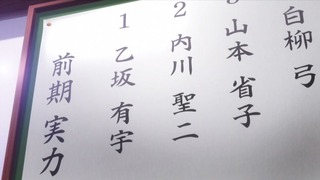 前期 実力
1 乙坂 有宇
2 内川 聖二
山本 省子
白柳 弓